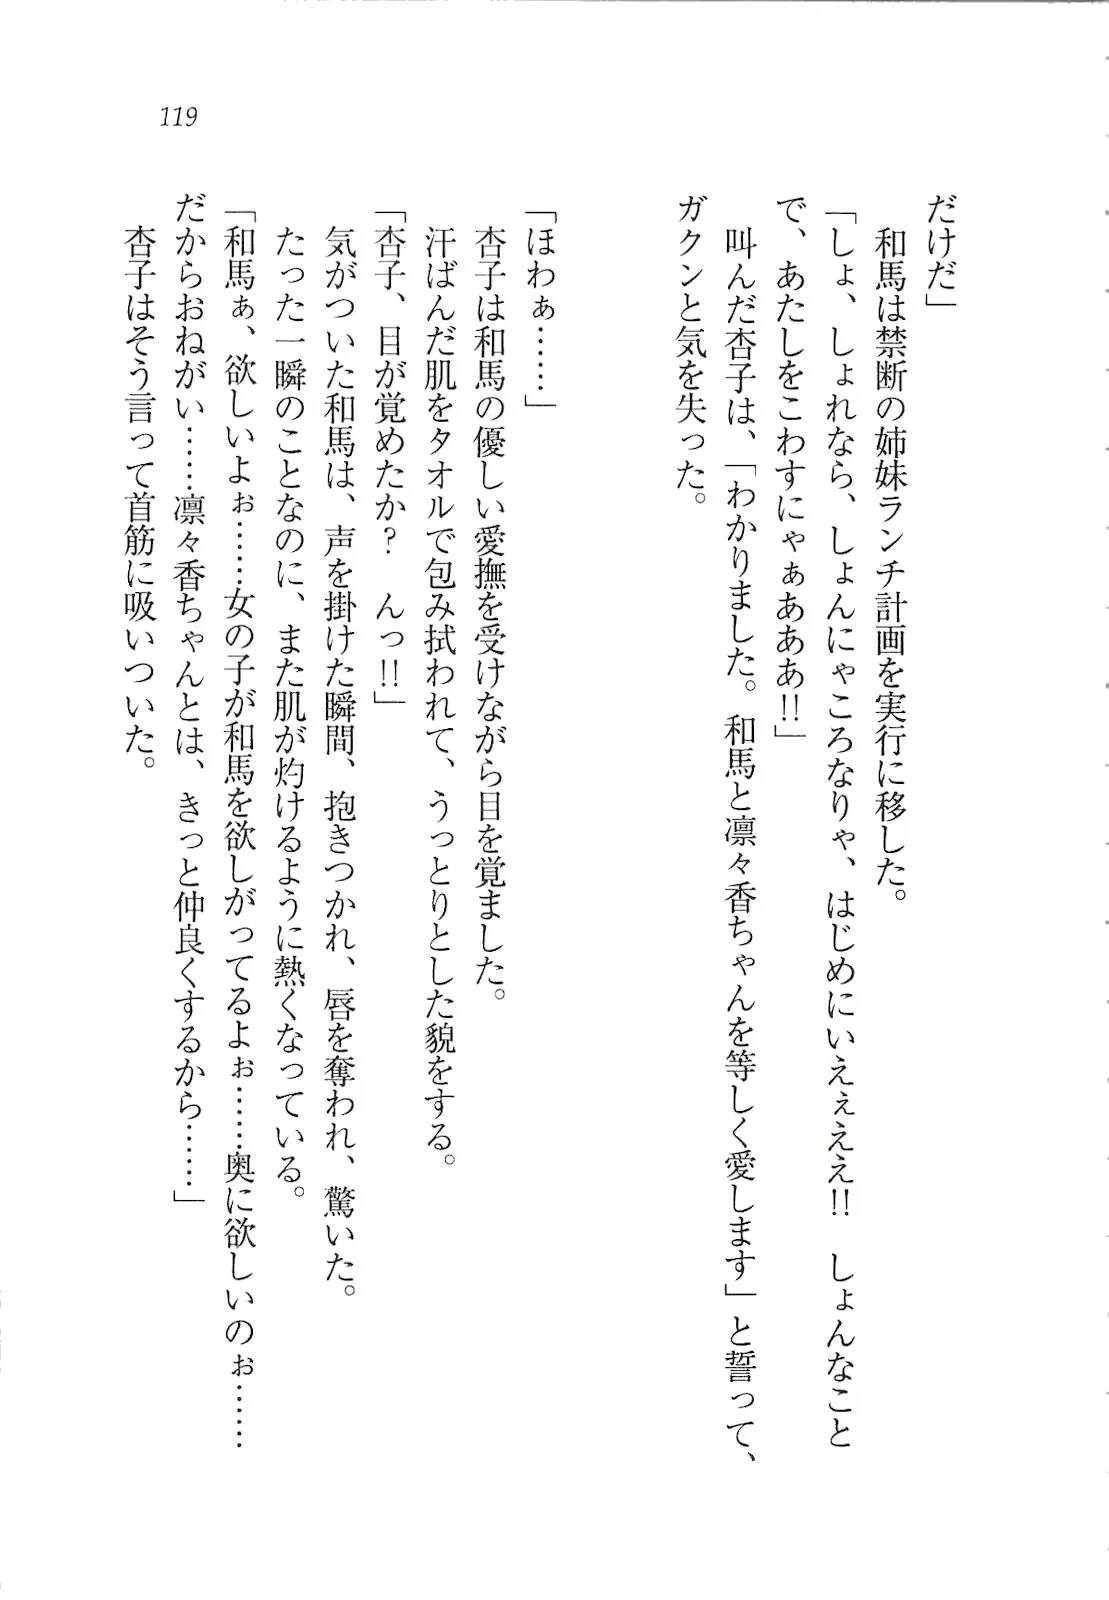 119
だけだ」
和馬は禁断の姉妹ランチ計画を実行に移した。
「しょ、しょれなら、しょんにゃころなりゃ、はじめにいえぇええ!!　しょんなこと
で、あたしをこわすにゃぁあああ!!」
叫んだ杏子は、「わかりました。和馬と凛々香ちゃんを等しく愛します」と誓って、
ガクンと気を失った。
「ほわぁ……」
杏子は和馬の優しい愛撫を受けながら目を覚ました。
汗ばんだ肌をタオルで包み拭われて、うっとりとした貌をする。
「杏子、目が覚めたか?　んっ!!」
気がついた和馬は、声を掛けた瞬間、抱きつかれ、唇を奪われ、驚いた。
たった一瞬のことなのに、また肌が灼けるように熱くなっている。
「和馬ぁ、欲しいよぉ……女の子が和馬を欲しがってるよぉ……奥に欲しいのぉ……
だからおねがい……凛々香ちゃんとは、きっと仲良くするから……」
杏子はそう言って首筋に吸いついた。